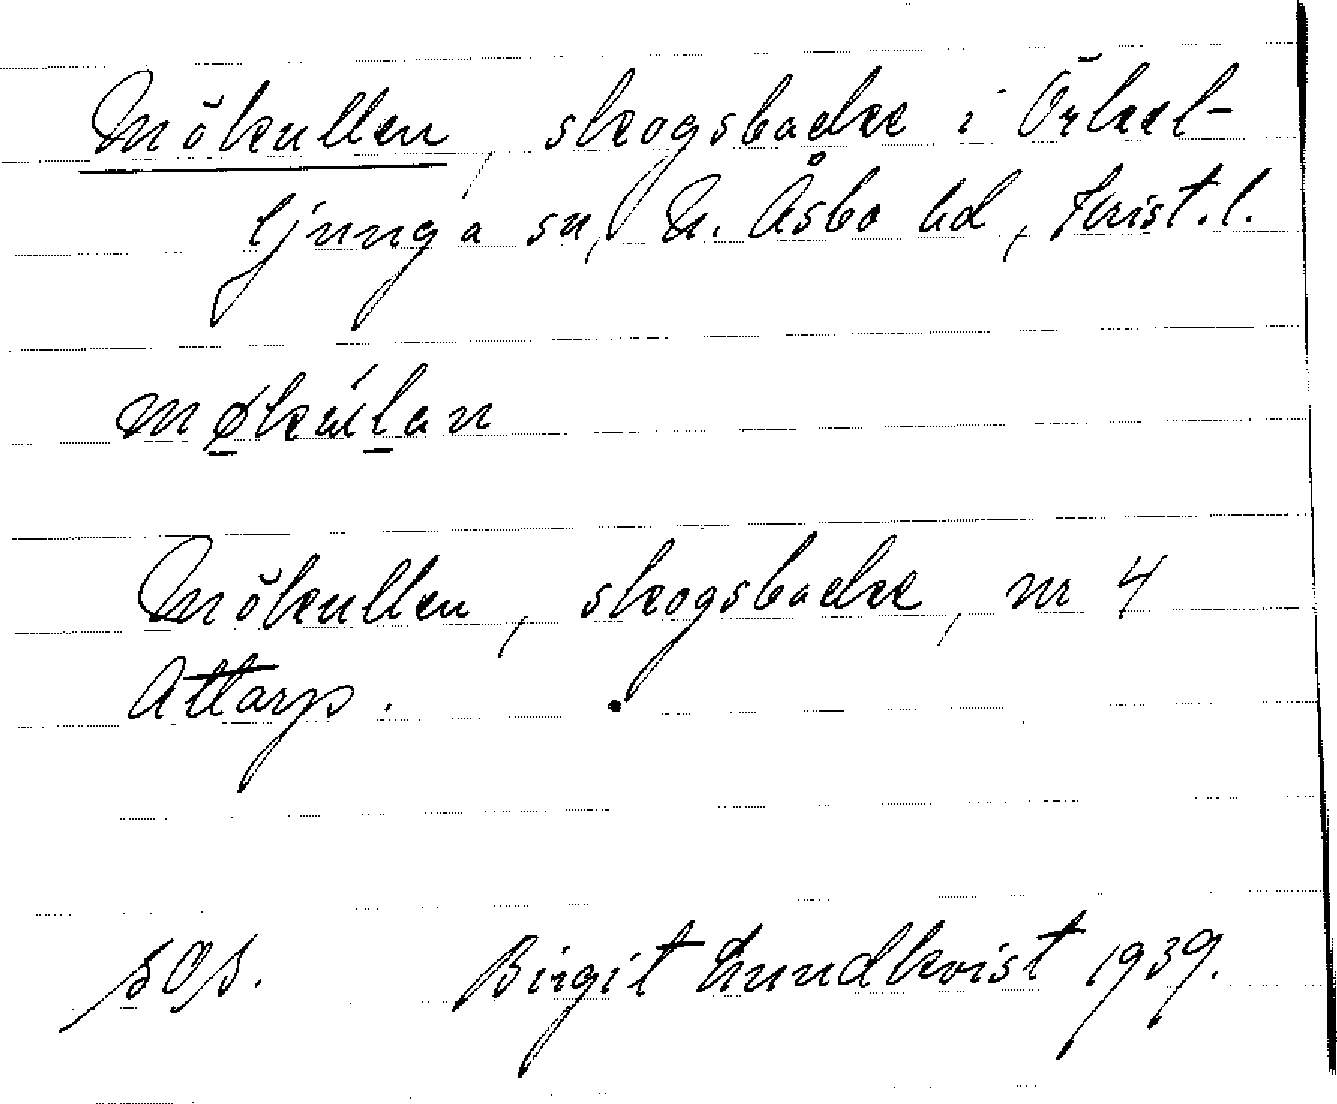 Mökullen, skogsbacke i Örkel-
ljunga sn, N. Åsbo hd, Krist. l.
møkúlan
Mökullen, skogsbacke, nr 4
Attarp.
Birgit Lundkvist 1939.